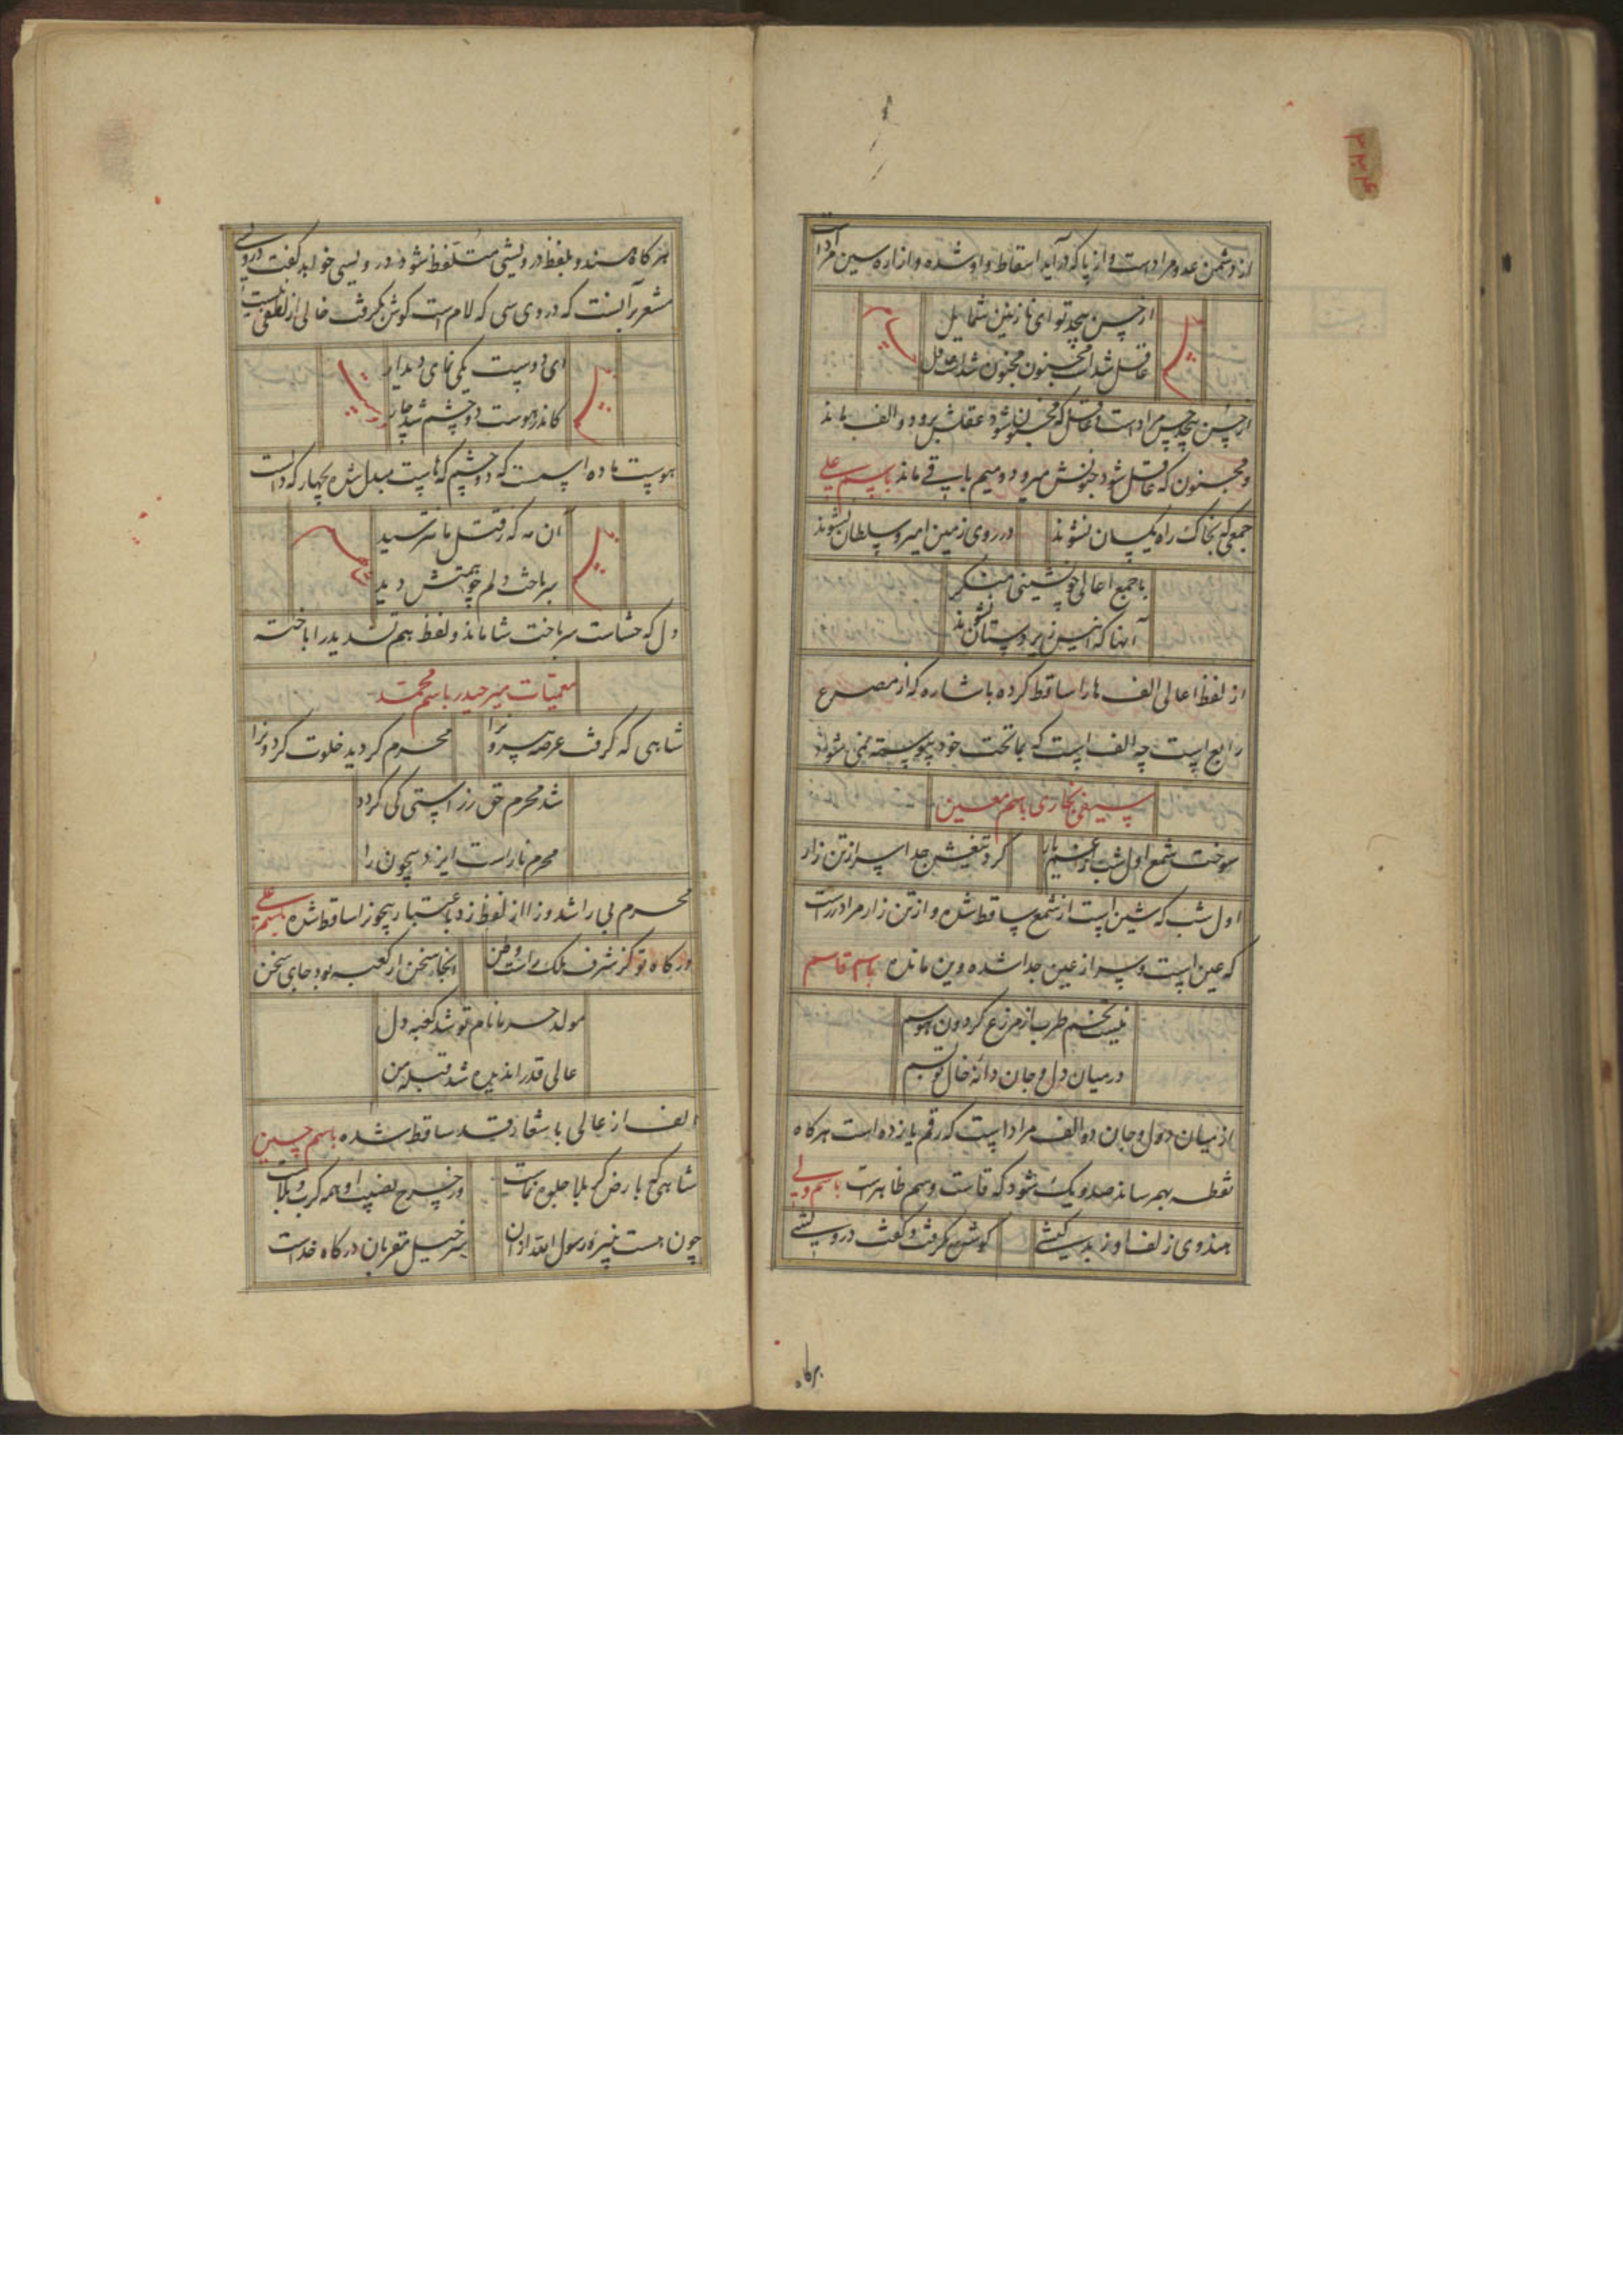 از دشمن عدو مراد است و از پا که در آید اسقاط واو شده و از اره سین مراد است
از حسن بیحد تو ای نازنین شمایل
عاقل شد است مجنون مجنون شد است عاقل
از حسن بیحد حس مراد است و عاقل که مجنون شود عقلش برود و الف بماند
و مجنون که عاقل شود جنونش میرود و میم باقی ماند باسم علی
جمعی که بخاک راه یکسان نشوند
در روی زمین امیر و سلطان نشوند
با جمع اعالی چو نشینی منگر
آنها که انیس زیردستان نشوند
از لفظ اعالی الف ها را ساقط کرده باشاره که از مصرع
رابع است چه الف است که بماتحت خود پیوسته نمی شود
سیفی بخاری باسم معین
سوخت شمع اول شب از غم یار
کرد تیغش جدا سر از تن زار
اول شب که شین است از شمع ساقط شده و از تن زار مراد
که عین است و سر از عین جدا شده وین مانده باسم قاسم
نیست تخم طرب از مزرع کردون هوسم
در میان دل و جان دانه خال تو بسم
از میان دل و جان دو الف مراد است که رقم یازده است هرکاه
نقطه بهم رساند صد و یک شود که قاست و سم ظاهر است باسم ولی
هندوی زلف او ز بدکیشی
کوش بگرفت و گفت درویشی
برکاه
هرکاه هندو بلفظ درویشی متلفظ شود درویسی خواهد کفت
مشعر بر آنست که در وی سی که لام است کوش بگرفت خالی از لطفی نیست
ای دوست یکی نمای دیدار
کاندر هوست دو چشم شد چار
هوست ماده است که دو چشم که هاست مبدل شده بچهار که دالست
آن مه که ز قتل ما نترسید
سر باخت دلم چو همتش دید
دل که حشاست سر باخت شا ماند و لفظ هم تشدید را باخته
معمیات میر حیدر باسم محمد
شاهی که گرفت عرصه بیرون را
محرم گردید خلوت کردون را
شد محرم حق ز راستی کی گردد
محرم ناراست ایزد بیچون را
محرم بی را شد و زا از لفظ زد باعتبار بیچون ساقط شده باسم علی
درکاه تو کز شرف ملک راست وطن
آنجا سخن از کعبه بود جای سخن
مولد حرما نام تو شد کعبه دل
عالی قدر اندیده شد قبله من
الف از عالی باشعار قد ساقط شده باسم حسین
شاهی که بارض کربلا جلوه نماست
در خرج نصیب او همه کرب و بلاست
چون هست نبیره رسول الله از آن
سرخیل مقربان درکاه خداست